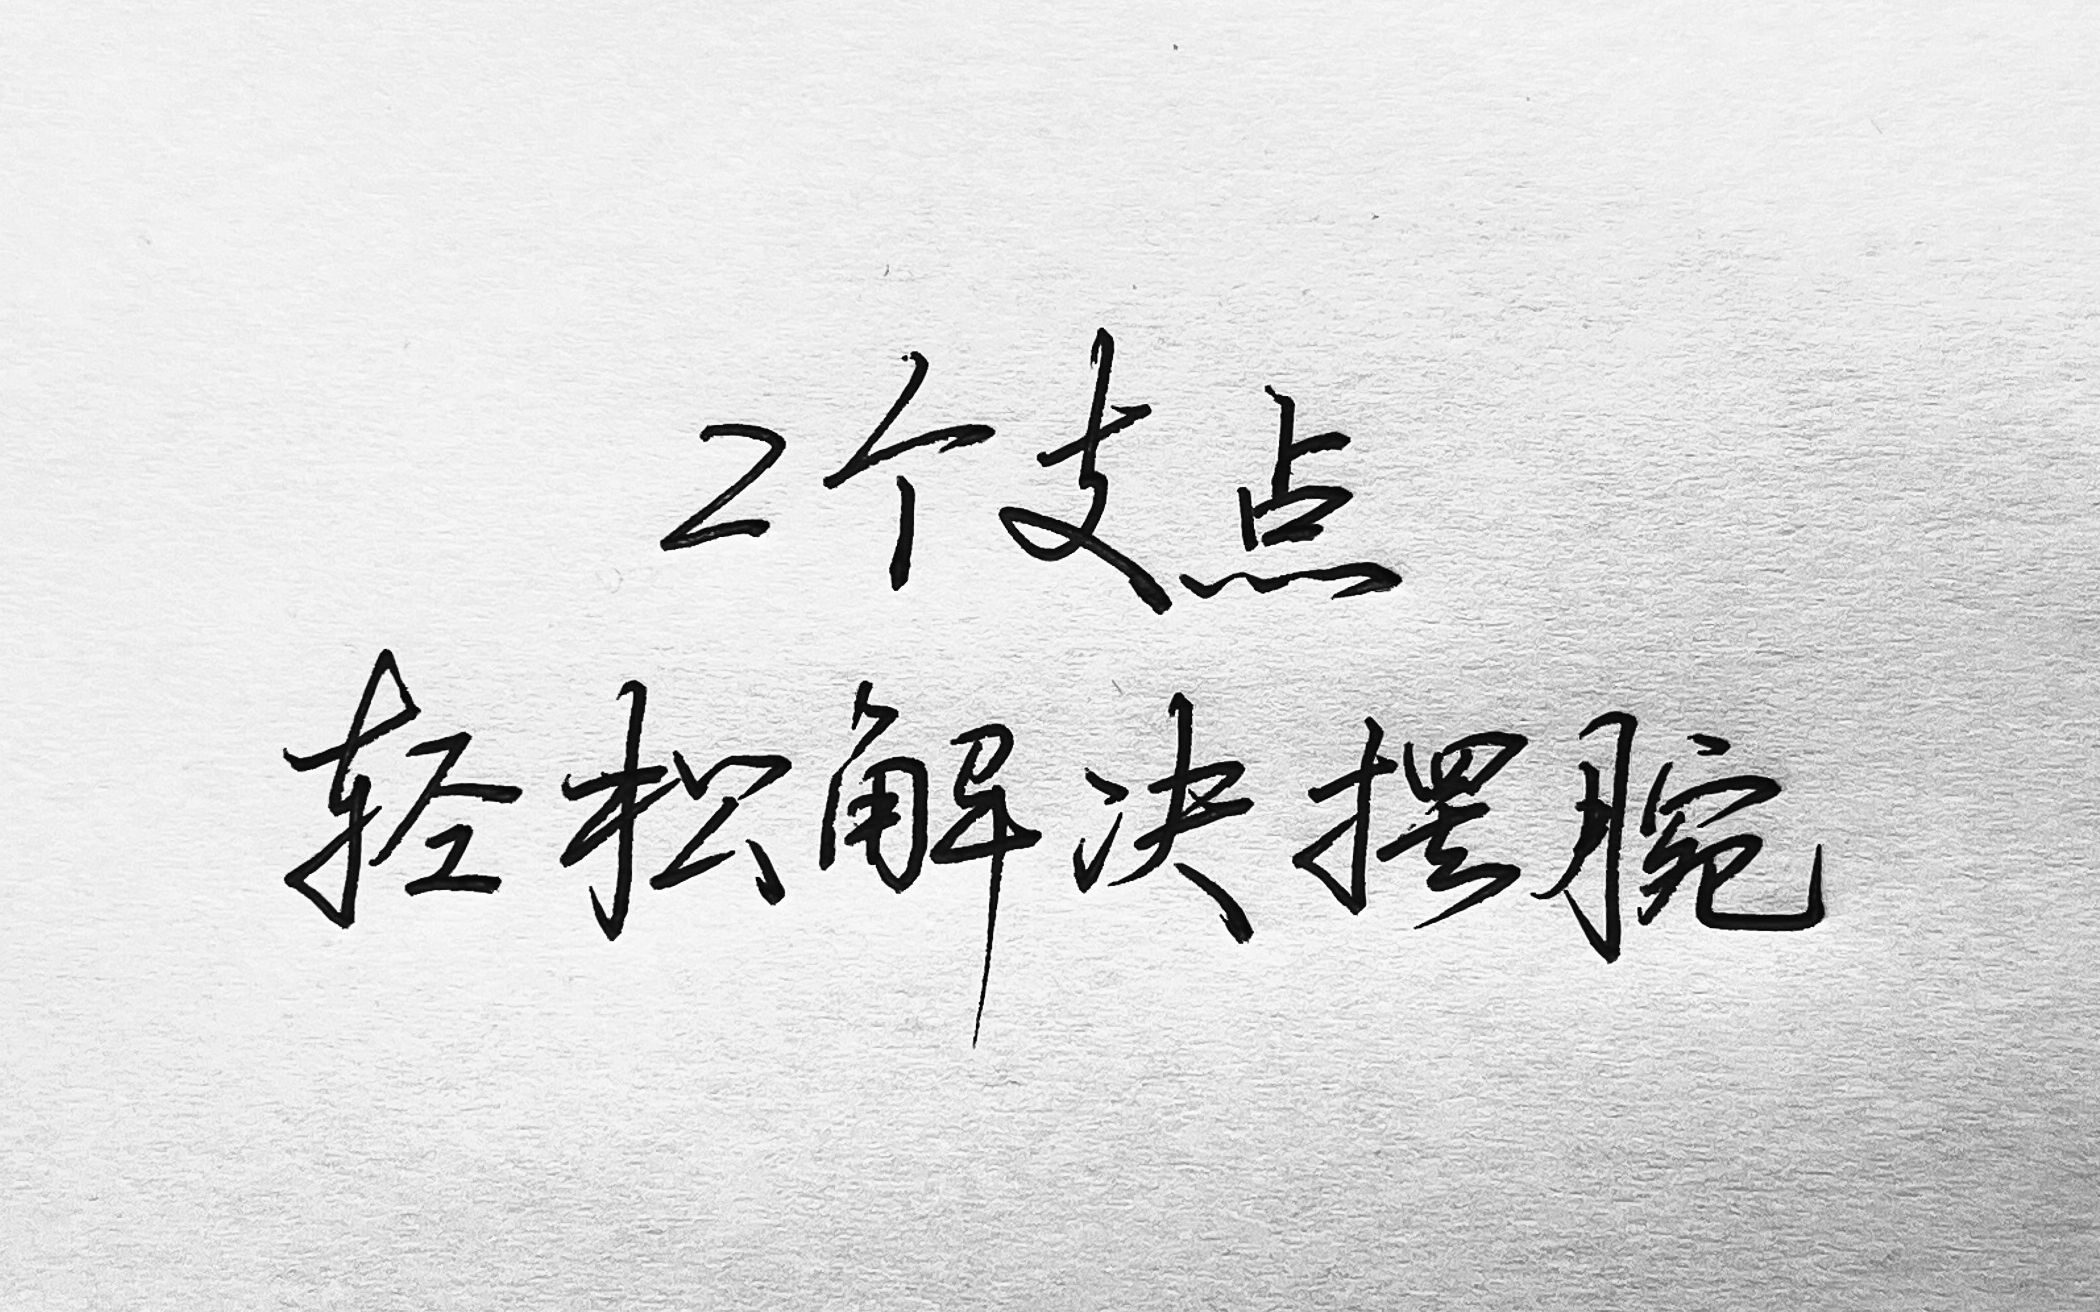 2个支点
轻松解决摆腕